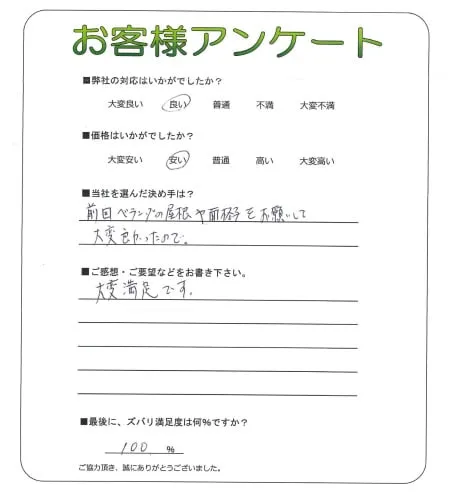 お客様アンケート
■弊社の対応はいかがでしたか？
大変良い 良い 普通 不満 大変不満
■価格はいかがでしたか？
大変安い 安い 普通 高い 大変高い
■当社を選んだ決め手は？
前回ベランダの屋根や面格子をお願いして
大変良かったので。
■ご感想・ご要望などをお書き下さい。
大変満足です。
■最後に、ズバリ満足度は何%ですか？
100 %
ご協力頂き、誠にありがとうございました。